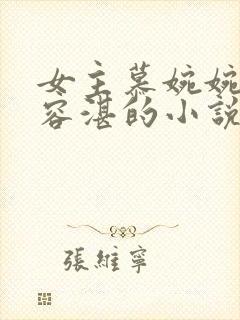 女主慕婉婉
容湛的小說
張維寧